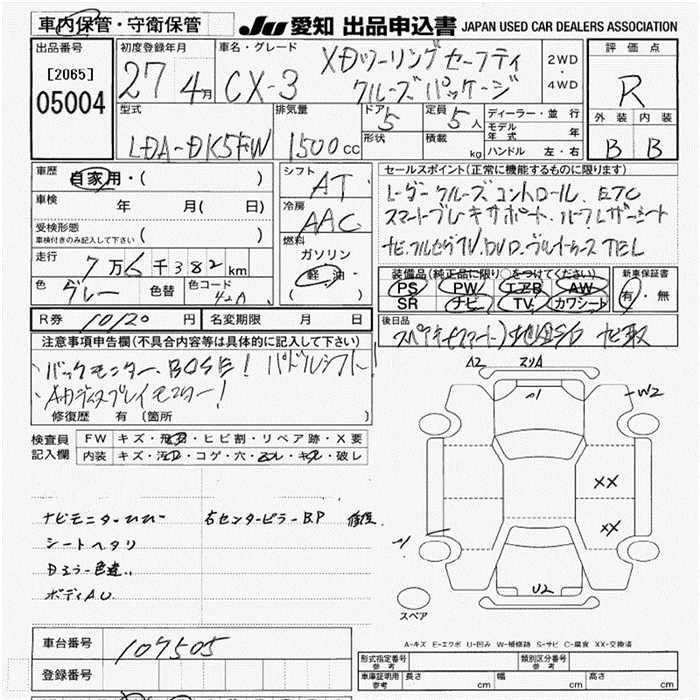 車内保管・守衛保管
JU 愛知 出品申込書 JAPAN USED CAR DEALERS ASSOCIATION
出品番号
[2065]
05004
初度登録年月
27 4月
車名・グレード
CX-3 XDツーリングセーフティ
クルーズパッケージ
2WD
・
4WD
評価点
R
外装 内装
B B
型式
LDA-DK5FW
排気量
1500cc
ドア 5
形状
定員 5人
積載 kg
ディーラー・並行
モデル年式 年
ハンドル 左・右
車歴
自家用・( )
車検
年 月( 日)
受検形態
車検付きのみ記入して下さい ( )
走行
7万6千382km
色 グレー 色替 色コード 42A
シフト
AT
冷房
AAC
燃料
ガソリン
軽油・
( )
セールスポイント(正常に機能するものに限ります)
レーダークルーズコントロール、ETC
スマートブレーキサポート、ハーフレザーシート
ナビ、フルセグTV、DVD、ブルートゥース TEL
装備品(純正品に限り○をつけてください)
PS PW エアB AW
SR ナビ TV カワシート
新車保証書
有・無
R券 10120円 名変期限 月 日
後日品
注意事項申告欄(不具合内容等は具体的に記入して下さい)
バックモニター、BOSE! パドルシフト!
アクティブディスプレイモニター!
修復歴 有 〔箇所 〕
検査員
記入欄
FW キズ・飛石・ヒビ割・リペア跡・X要
内装 キズ・汚レ・コゲ・穴・スレ・キレ・破レ
ナビモニターヒビ 右センターピラーBP 修正
シートヘタリ
Dミラー色違い
ボディAU
A2 スリA
A1
W2
XX
XX
A1
U2
スペア
A-キズ E-エクボ U-凹み W-補修跡 S-サビ C-腐食 XX-交換済
車台番号 107505
登録番号
形式指定番号
参考
類別区分番号
参考
車庫証明用
参考
長さ cm 幅 cm 高さ cm